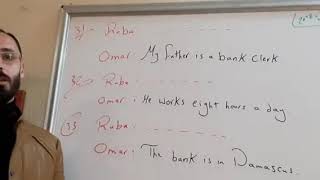 31- Ruba - - - - - - -
Omar: My father is a bank clerk
32- Ruba: - - - - - - -
Omar: He works eight hours a day
33 Ruba: - - - - - - -
Omar: The bank is in Damascus.